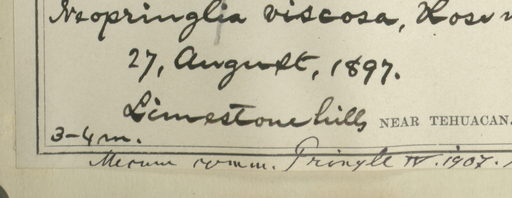 Neopringlea viscosa, Rose n
27, August, 1897.
Limestone hills NEAR TEHUACAN.
3-4m.
comm. Pringle IV. 1907.